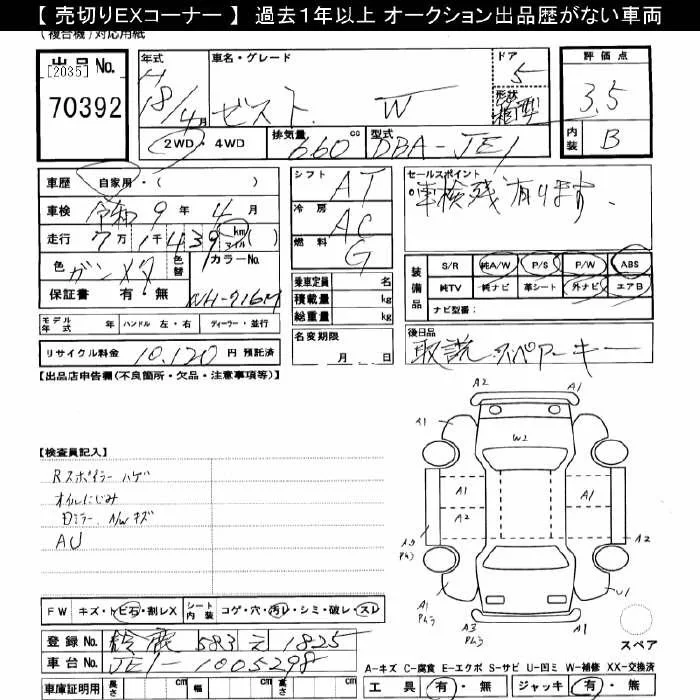 【 売切りEXコーナー 】 過去1年以上 オークション出品歴がない車両
(複合機)対応用紙
出品No.
[2035]
70392
年式 H18/4月
車名・グレード
ゼスト W
ドア 5
形状 箱型
2WD・4WD
排気量 660 cc
型式 DBA-JE1
評価点
3.5
内装 B
車歴 自家用・( )
車検 令和9年4月
走行 7万1千439 km マイル ( )
色 ガンメタ 色替 カラーNo.
NH-716M
保証書 有・無
モデル年式 年 ハンドル 左・右 ディーラー・並行
リサイクル料金 10,120 円 預託済
シフト AT
冷房 AC
燃料 G
乗車定員 名
積載量 kg
総重量 kg
名変期限
月 日
セールスポイント
車検残有ります.
装備品
S/R 純A/W P/S P/W ABS
純TV 純ナビ 革シート 外ナビ エアB
ナビ型番:
後日品
取説 スペアーキー
【出品店申告欄(不良箇所・欠品・注意事項等)】
【検査員記入】
Rスポイラーハゲ
オイルにじみ
ミラー A/Wキズ
AU
A2
A1
A1
W2
A1
A1
A2
A2
A1
U1
A3
A1
スペア
FW キズ・トビ石・割レX
シート内装 コゲ・穴・汚レ・シミ・破レ・スレ
登録No. 鈴鹿 583 え 1825
車台No. JE1-1005298
車庫証明用 長さ cm 幅 cm 高さ cm
A-キズ C-腐食 E-エクボ S-サビ U-凹ミ W-補修 XX-交換済
工具 有・無 ジャッキ 有・無